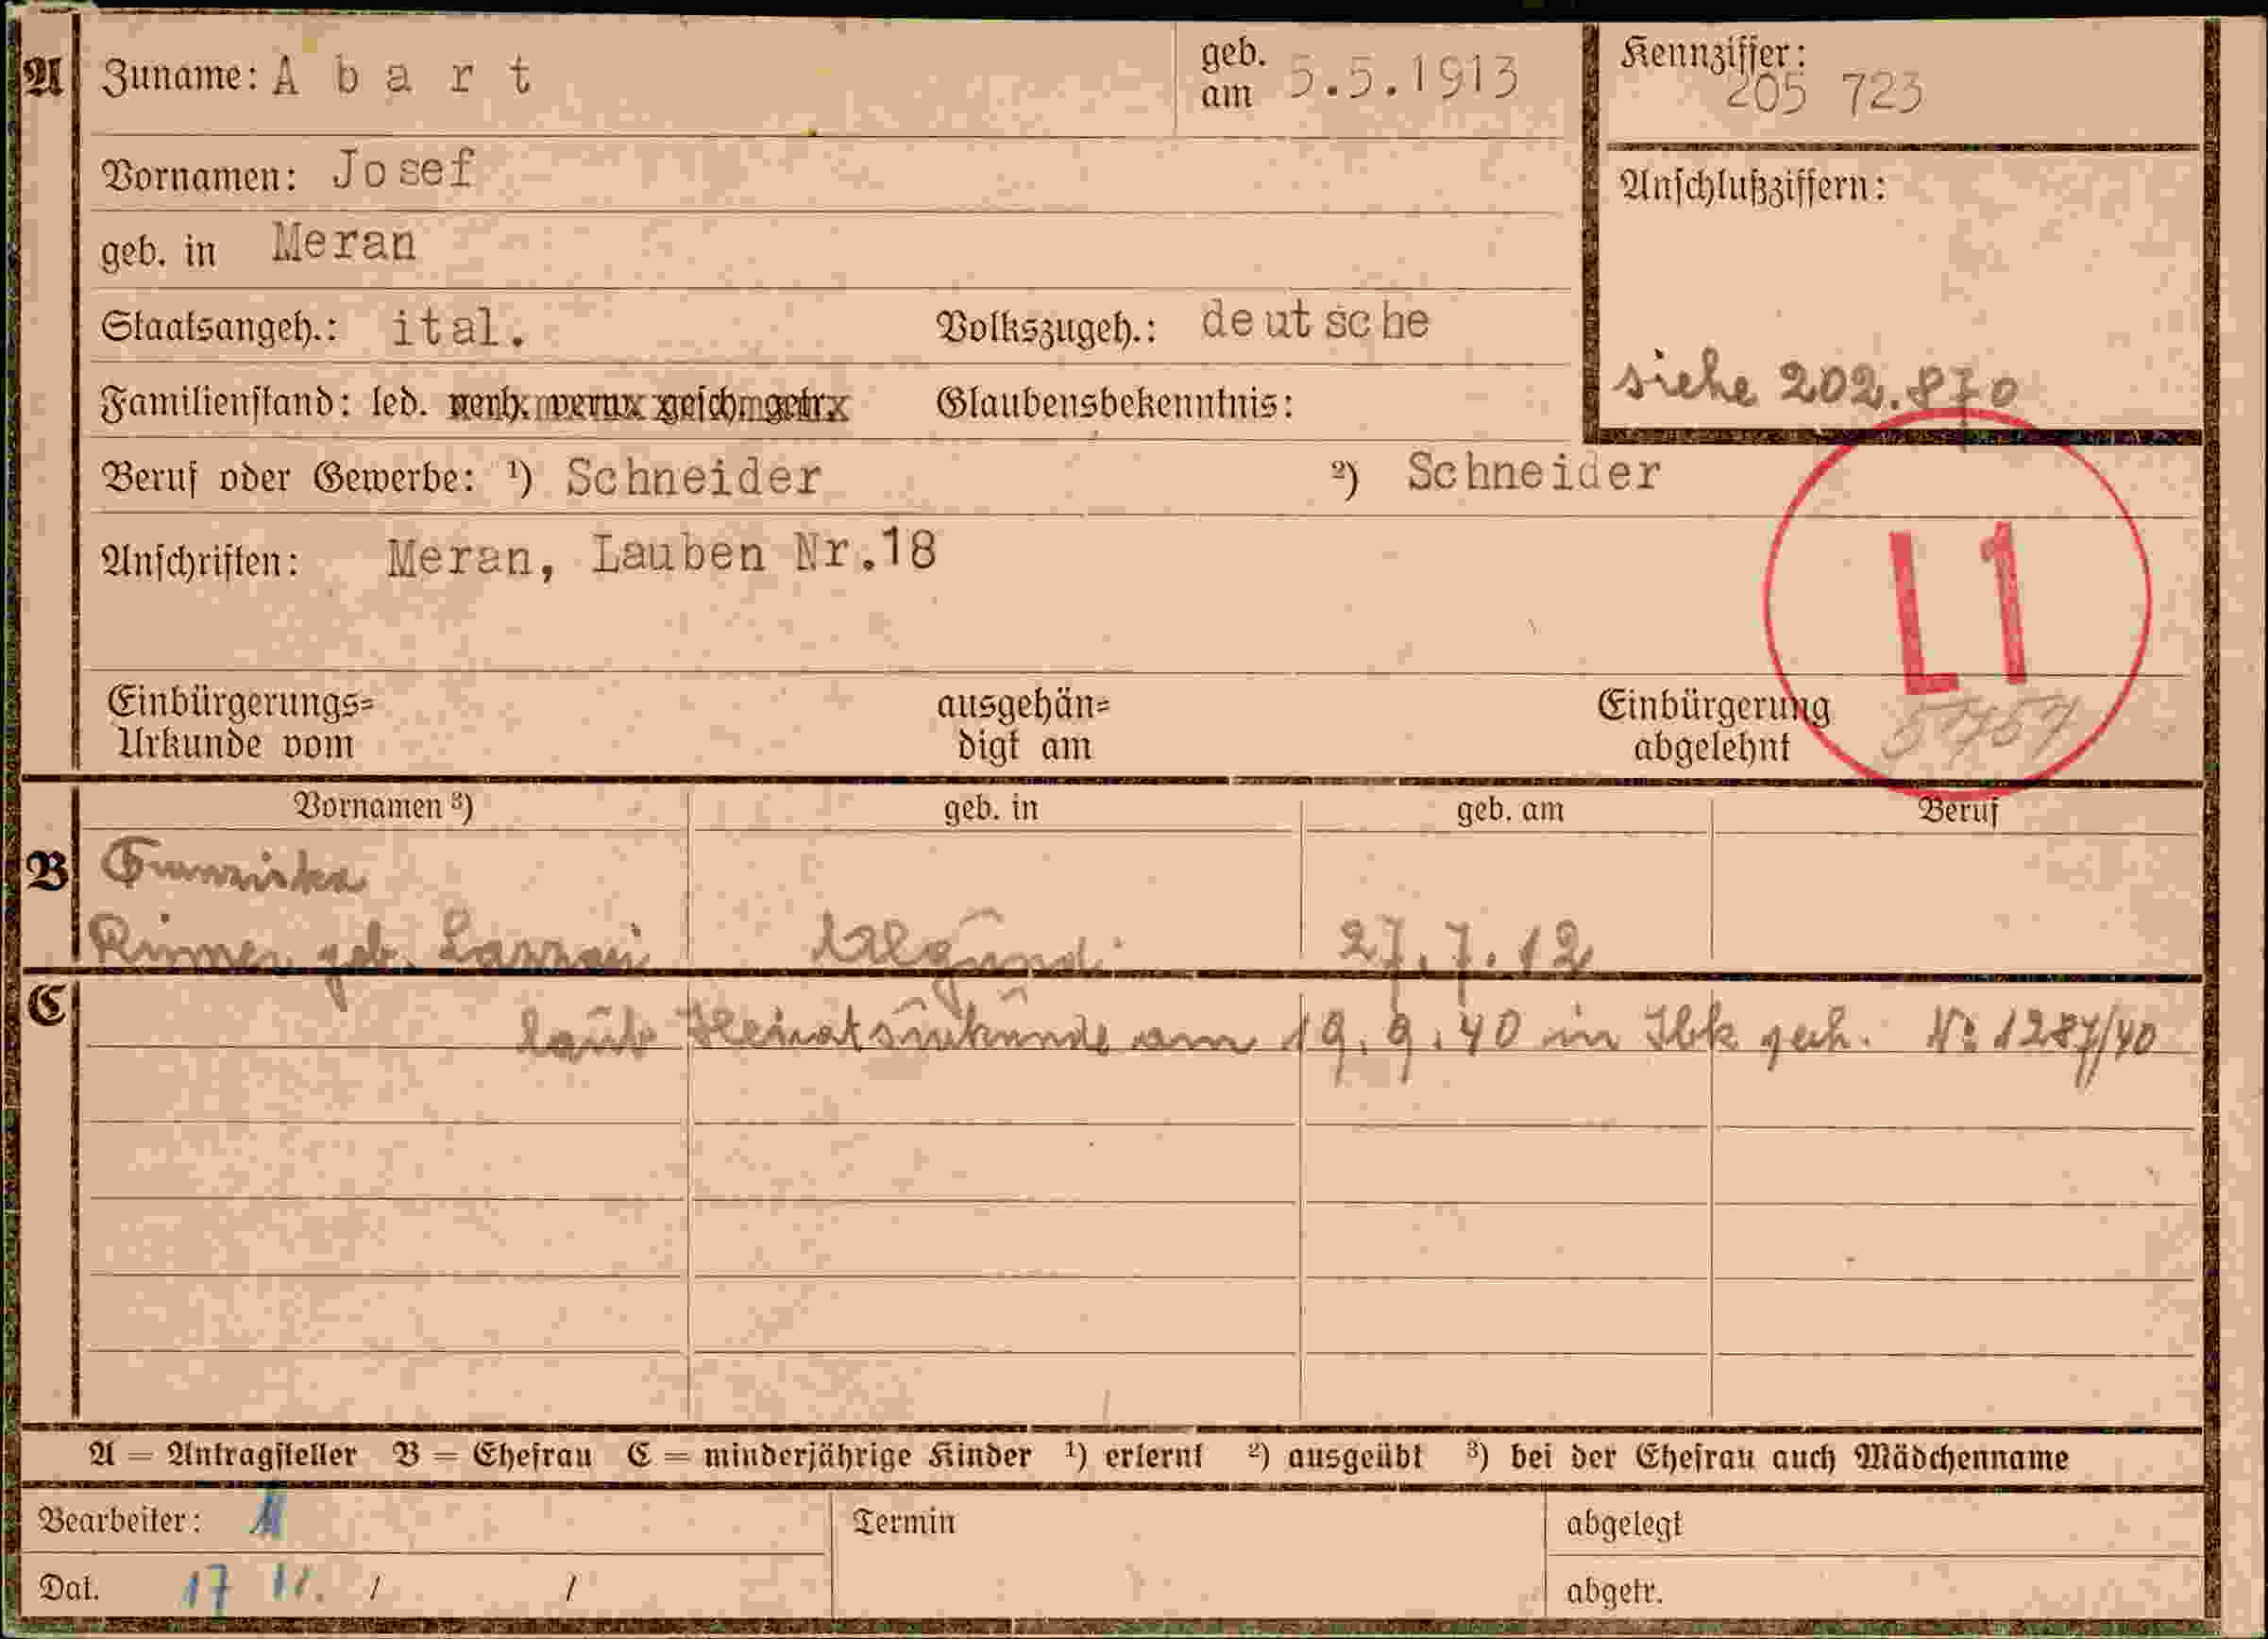 A Zuname: Abart geb. am 5.5.1913 Kennziffer: 205 723
Vornamen: Josef Anschlußziffern:
geb. in Meran
Staatsangeh.: ital. Volkszugeh.: deutsche
siehe 202.870
Familienstand: led. verh. verw. gesch. getr. Glaubensbekenntnis:
Beruf oder Gewerbe: ¹) Schneider ²) Schneider
Anschriften: Meran, Lauben Nr.18
L1
Einbürgerungs= ausgehän= Einbürgerung
Urkunde vom digt am abgelehnt
Vornamen ³) geb. in geb. am Beruf
B Franziska
geb. Algund 27.7.12
C laut Heiratsurkunde am 19.9.40 in Ibk gech. No 1287/40
A = Antragsteller B = Ehefrau C = minderjährige Kinder ¹) erlernt ²) ausgeübt ³) bei der Ehefrau auch Mädchenname
Bearbeiter: Termin abgelegt
Dat. 17 11. / / abgetr.